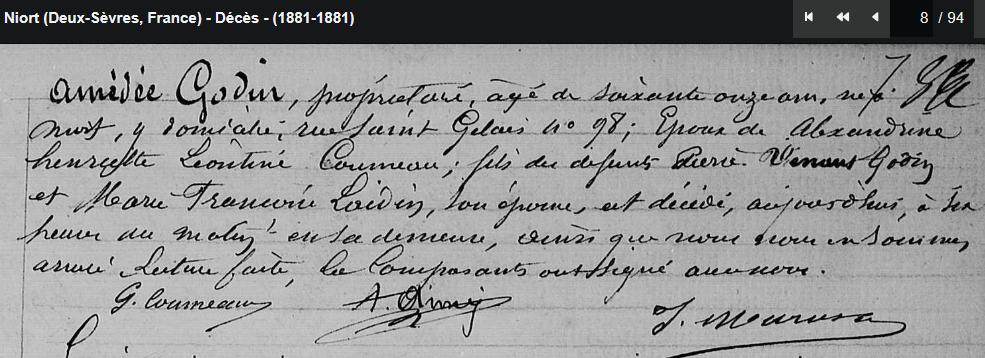 Niort (Deux-Sèvres, France) - Décès - (1881-1881)
8 / 94
Amédée Godin, propriétaire, âgé de soixante onze ans, né à
Niort, y domicilié, rue Saint Gelais n° 98; Epoux de Alexandrine
henriette Léontine Coumeau; fils de defunts Pierre Venant Godin
et Marie Françoise Laidin, son épouse, est décédé, aujourd'hui, à six
heures du matin en sa demeure, ainsi que nous nous en sommes
assuré Lecture faite, les Comparants ont signé avec nous.
G. Coumeau
A.